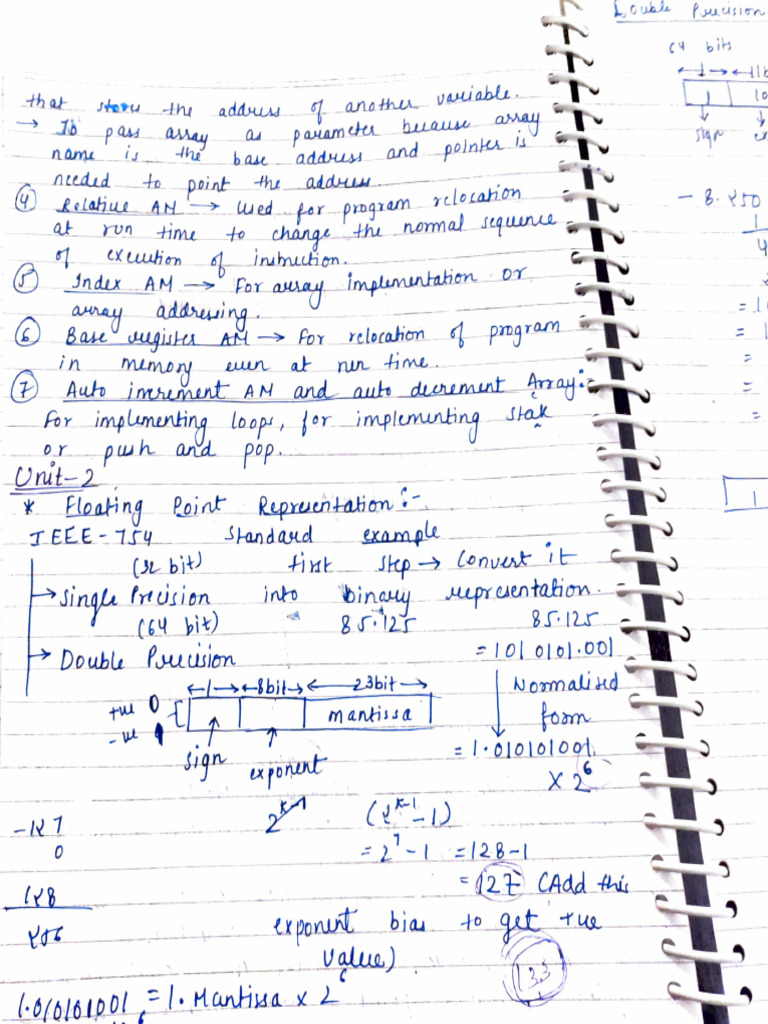 that store the address of another variable.
→ To pass array as parameter because array
name is the base address and pointer is
needed to point the address.
④ Relative AM → Used for program relocation
at run time to change the normal sequence
of execution of instruction.
⑤ Index AM → For array implementation or
array addressing.
⑥ Base register AM → For relocation of program
in memory even at run time.
⑦ Auto increment AM and auto decrement Array:-
For implementing loops, for implementing stak
or push and pop.
Unit-2
* Floating Point Representation:-
IEEE-754 standard example
(32 bit) first step → Convert it
→ Single Precision into binary representation.
(64 bit) 85.125 85.125
→ Double Precision = 1010101.001
←1→ ←8bit→ ←23bit→ Normalised
+ve 0 mantissa form
-ve 1
sign exponent = 1.010101001
× 2^6
-127 2^k-1 (2^k-1 -1)
0 = 2^7 -1 = 128-1
= 127 (Add this
128
256 exponent bias to get +ve
value)
133
1.010101001 = 1. Mantissa × 2^6
Double Precision
64 bits
1
sign
- 8.250
1
4
1